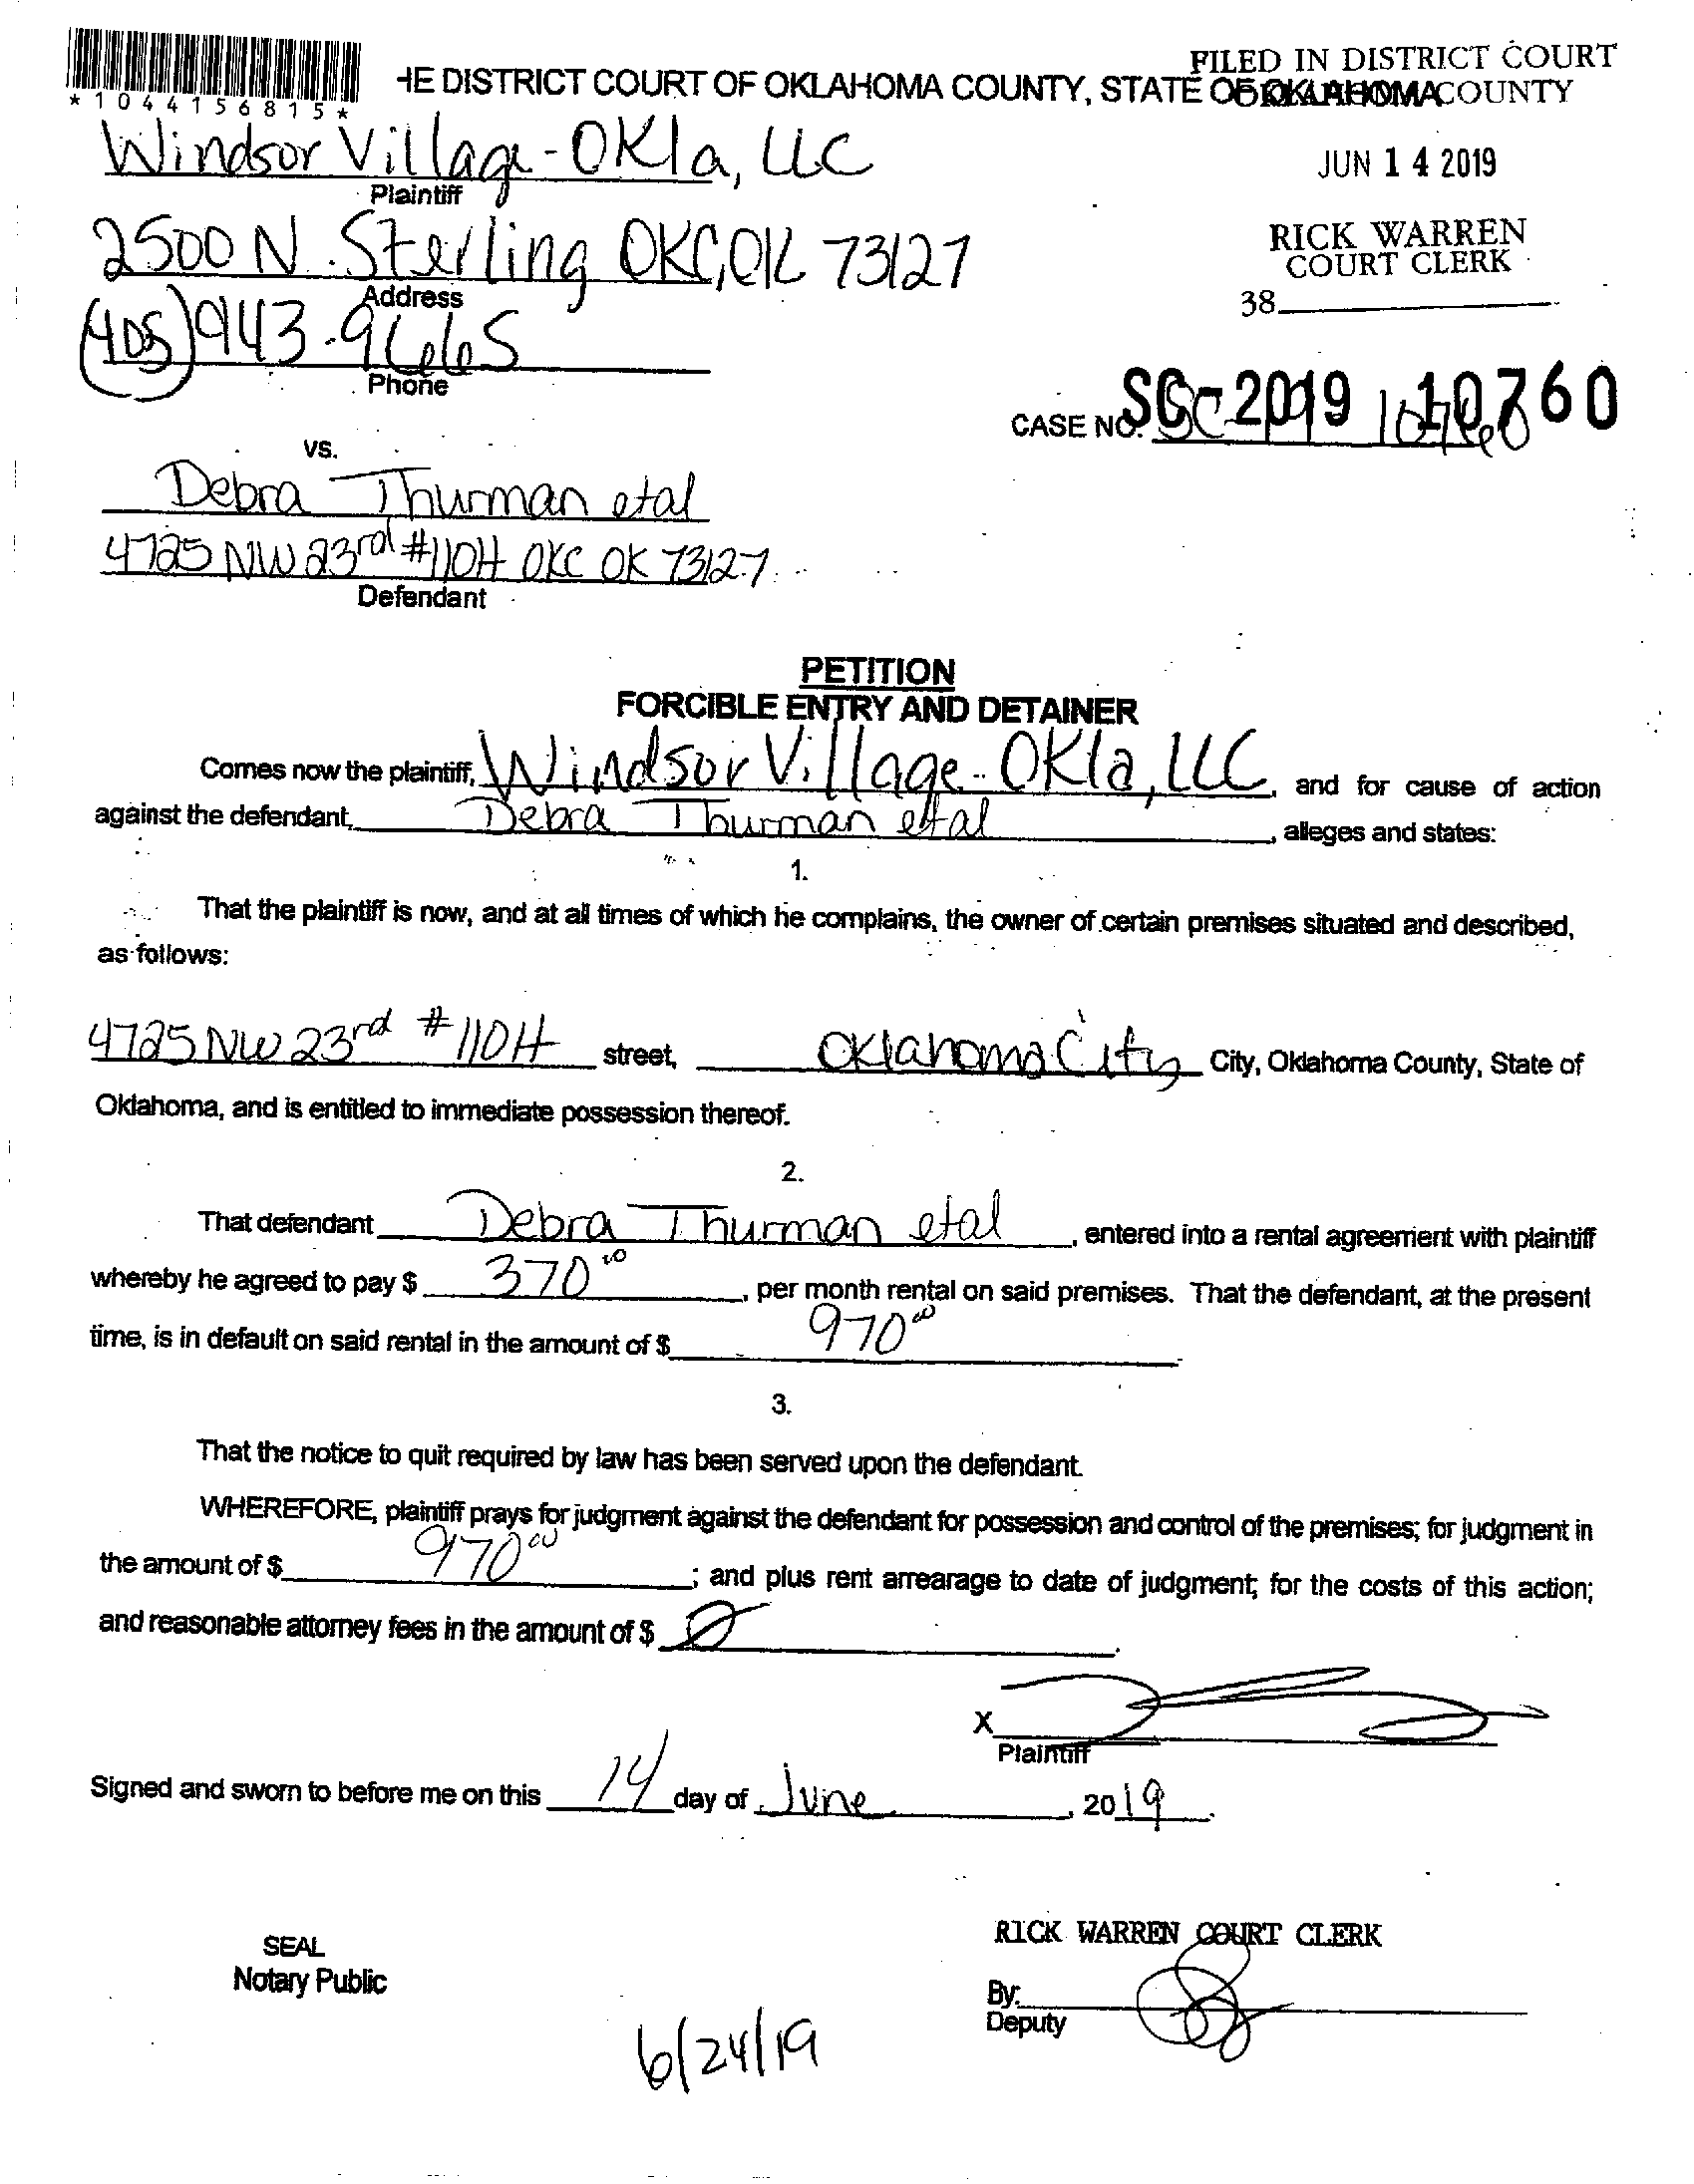 FILED IN DISTRICT COURT
HE DISTRICT COURT OF OKLAHOMA COUNTY, STATE OF OKLAHOMA
OKLAHOMA COUNTY
*1044156815*
JUN 14 2019
RICK WARREN
COURT CLERK
38
Windsor Village-OKla, LLC
Plaintiff
2500 N. Sterling OKC, OK 73127
Address
(405) 943-9665
Phone
CASE NO. SC-2019 10760
SC-19 10760
vs.
Debra Thurman etal
4725 NW 23rd #110H OKC OK 73127
Defendant
PETITION
FORCIBLE ENTRY AND DETAINER
Comes now the plaintiff, Windsor Village-OKla, LLC, and for cause of action
against the defendant, Debra Thurman etal, alleges and states:
1.
That the plaintiff is now, and at all times of which he complains, the owner of certain premises situated and described,
as follows:
4725 NW 23rd #110H street, Oklahoma City City, Oklahoma County, State of
Oklahoma, and is entitled to immediate possession thereof.
2.
That defendant Debra Thurman etal, entered into a rental agreement with plaintiff
whereby he agreed to pay $ 370 00, per month rental on said premises. That the defendant, at the present
time, is in default on said rental in the amount of $ 970 00
3.
That the notice to quit required by law has been served upon the defendant.
WHEREFORE, plaintiff prays for judgment against the defendant for possession and control of the premises; for judgment in
the amount of $ 970 00; and plus rent arrearage to date of judgment; for the costs of this action;
and reasonable attorney fees in the amount of $ 0.
X
Plaintiff
Signed and sworn to before me on this 14 day of June, 2019.
SEAL
Notary Public
RICK WARREN COURT CLERK
By:
Deputy
6/24/19